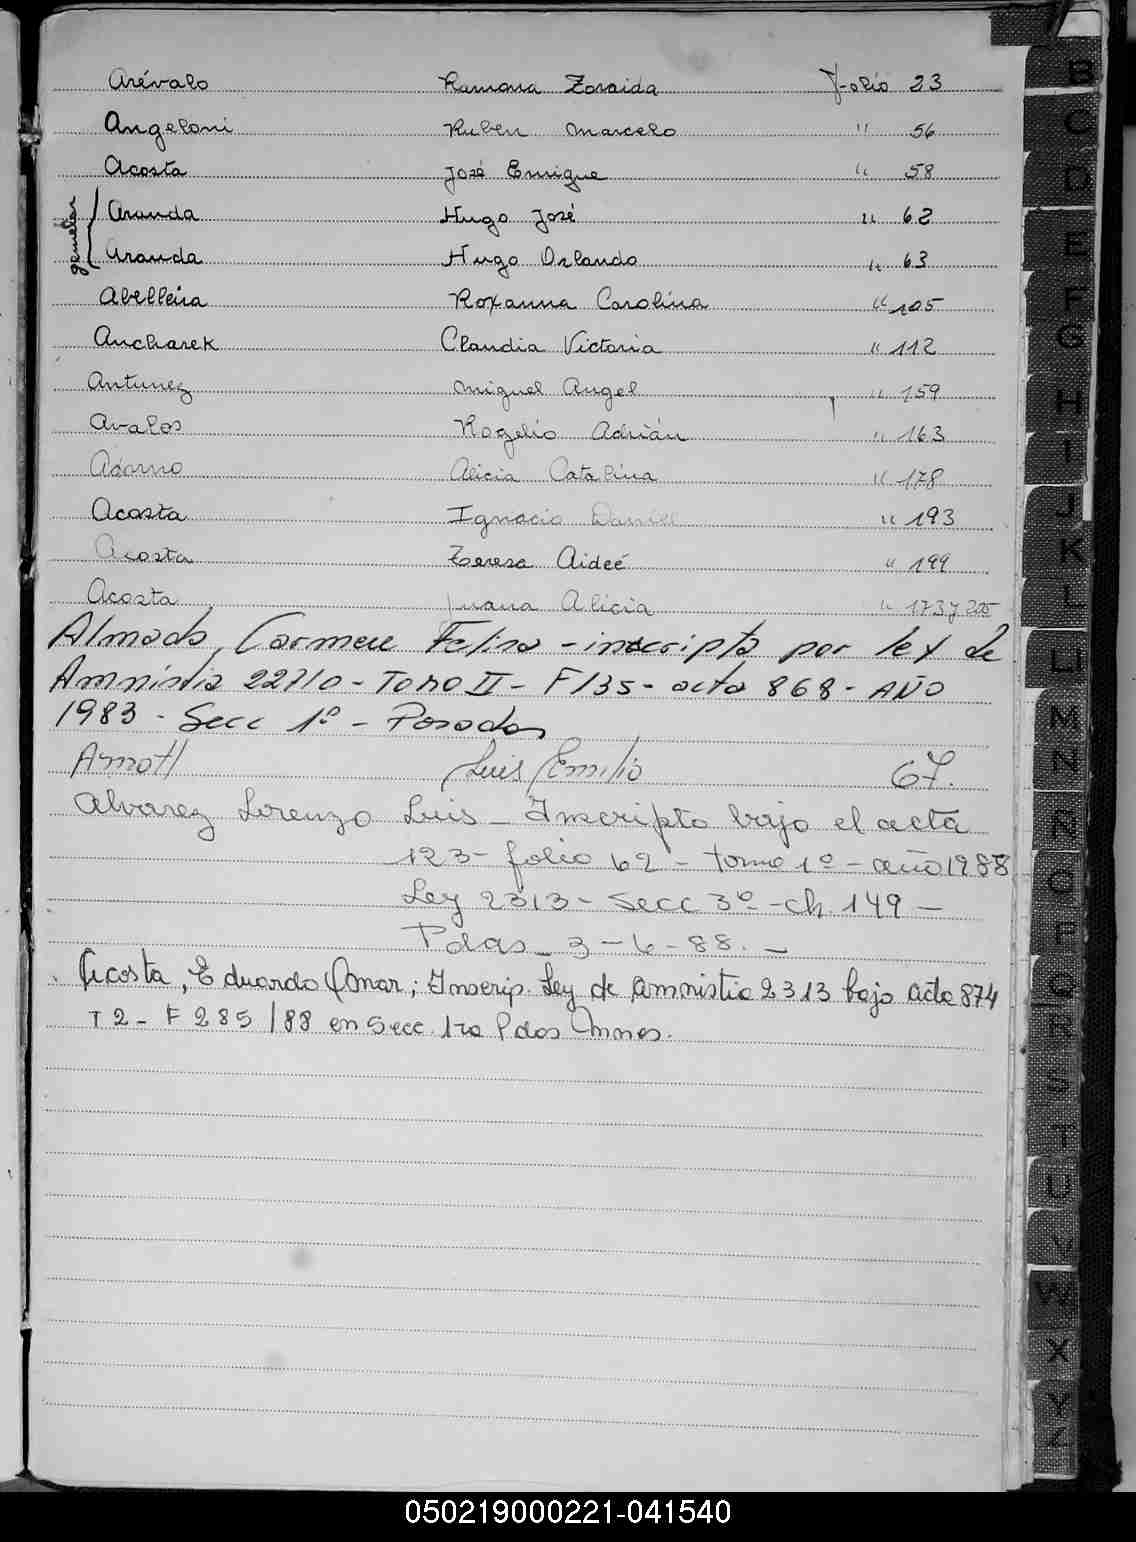 Arévalo Ramona Zoraida Folio 23
Angeloni Ruben Marcelo " 56
Acosta José Enrique " 58
gemelar
Aranda Hugo José " 62
Aranda Hugo Orlando " 63
Abelleira Roxanna Carolina " 105
Ancharek Claudia Victoria " 112
Antunez Miguel Angel " 159
Avalos Rogelio Adrián " 163
Adorno Alicia Catalina " 178
Acosta Ignacio Daniel " 193
Acosta Teresa Aideé " 199
Acosta Juana Alicia " 173 y 200
Almada, Carmen Felisa - inscripta por ley de
Amnistia 22710 - Tomo II - F 135 - acta 868 - AÑO
1983 - Secc 1º - Posadas
Arnott Luis Emilio 67.
Alvarez Lorenzo Luis - Inscripto bajo el acta
123 - folio 62 - tomo 1º - año 1988
Ley 2313 - Secc 3º - ch. 149 -
Pdas - 3 - 6 - 88. -
Acosta, Eduardo Omar; Inscrip. Ley de Amnistia 2313 bajo acta 874
T 2 - F 285 / 88 en Secc. 1ra Pdas Mnes.
B
C
D
E
F
G
H
I
J
K
L
LL
M
N
Ñ
O
P
Q
R
S
T
U
V
W
X
Y
Z
050219000221-041540